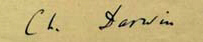 Ch. Darwin